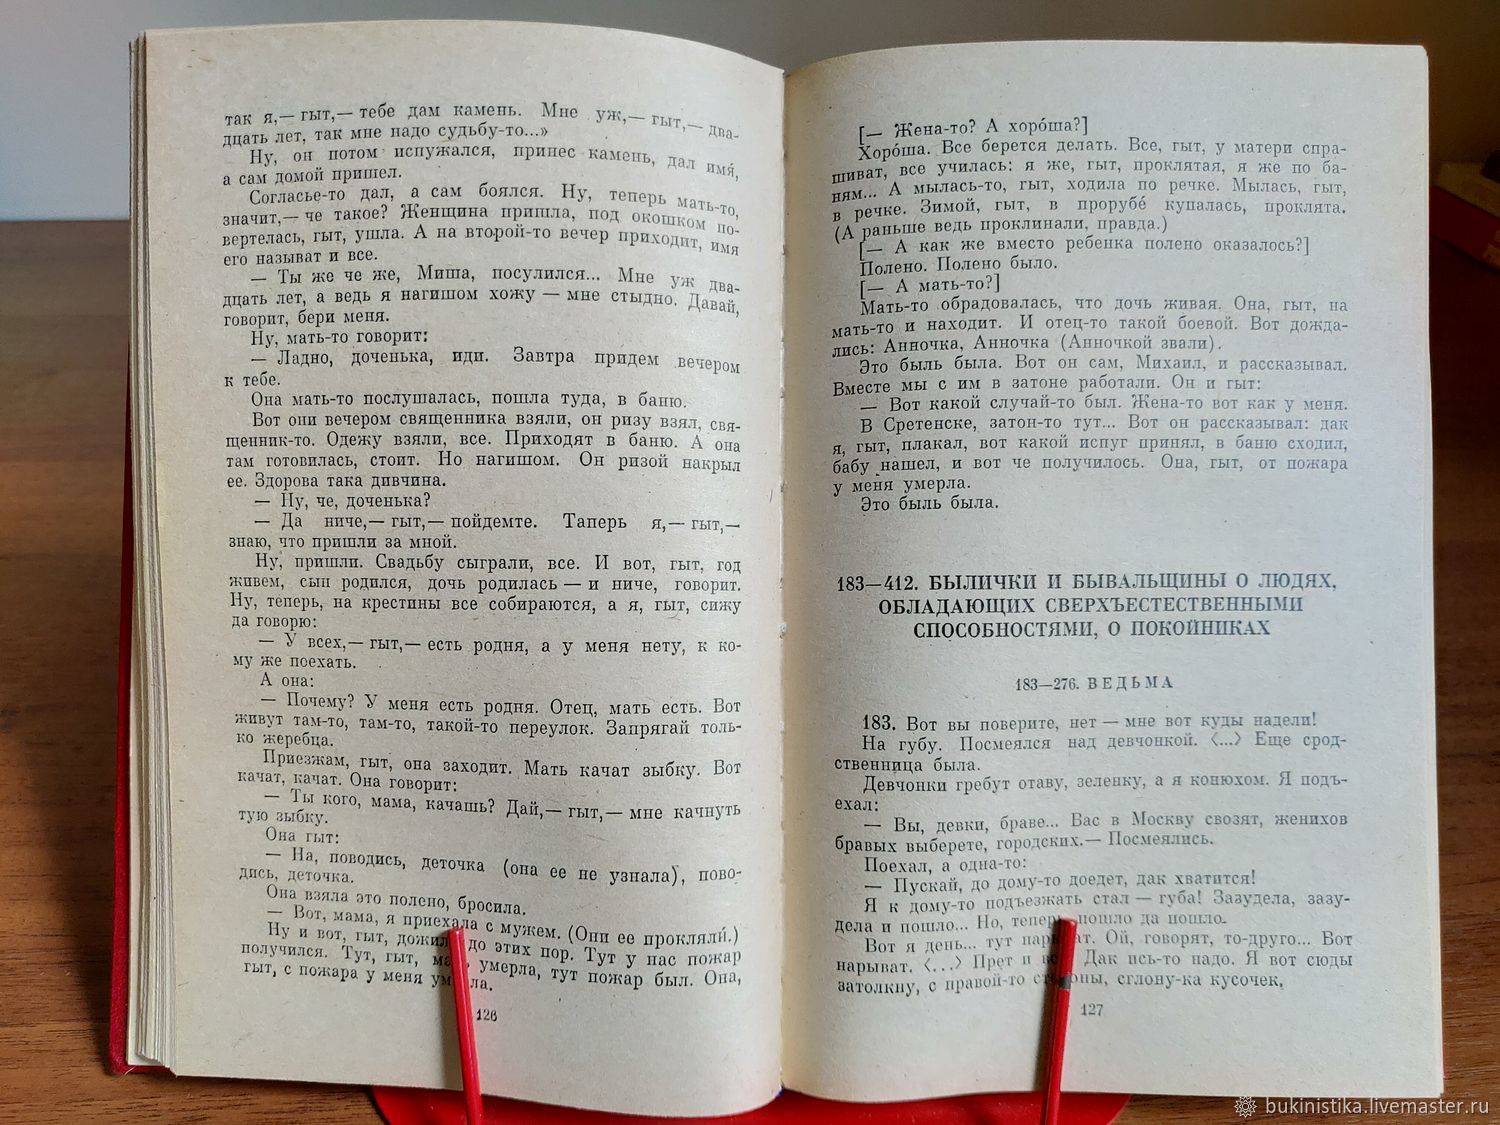 так я,— гыт,— тебе дам камень. Мне уж,— гыт,— два-
дцать лет, так мне надо судьбу-то...»
Ну, он потом испужался, принес камень, дал имя́,
а сам домой пришел.
Согласье-то дал, а сам боялся. Ну, теперь мать-то,
значит,— че такое? Женщина пришла, под окошком по-
вертелась, гыт, ушла. А на второй-то вечер приходит, имя
его называт и все.
— Ты же че же, Миша, посулился... Мне уж два-
дцать лет, а ведь я нагишом хожу — мне стыдно. Давай,
говорит, бери меня.
Ну, мать-то говорит:
— Ладно, доченька, иди. Завтра придем вечером
к тебе.
Она мать-то послушалась, пошла туда, в баню.
Вот они вечером священника взяли, он ризу взял, свя-
щенник-то. Одежу взяли, все. Приходят в баню. А она
там готовилась, стоит. Но нагишом. Он ризой накрыл
ее. Здорова така дивчина.
— Ну, че, доченька?
— Да ниче,— гыт,— пойдемте. Таперь я,— гыт,—
знаю, что пришли за мной.
Ну, пришли. Свадьбу сыграли, все. И вот, гыт, год
живем, сын родился, дочь родилась — и ниче, говорит.
Ну, теперь, на крестины все собираются, а я, гыт, сижу
да говорю:
— У всех,— гыт,— есть родня, а у меня нету, к ко-
му же поехать.
А она:
— Почему? У меня есть родня. Отец, мать есть. Вот
живут там-то, там-то, такой-то переулок. Запрягай толь-
ко жеребца.
Приезжам, гыт, она заходит. Мать качат зыбку. Вот
качат, качат. Она говорит:
— Ты кого, мама, качашь? Дай,— гыт,— мне качнуть
тую зыбку.
Она гыт:
— На, поводись, деточка (она ее не узнала), пово-
дись, деточка.
Она взяла это полено, бросила.
— Вот, мама, я приехала с мужем. (Они ее прокляли́.)
Ну и вот, гыт, дожили до этих пор. Тут у нас пожар
получился. Тут, гыт, умерла, тут пожар был. Она,
гыт, с пожара у меня умерла.
126
[— Жена-то? А хоро́ша?]
Хоро́ша. Все берется делать. Все, гыт, у матери спра-
шиват, все училась: я же, гыт, проклятая, я же по ба-
ням... А мылась-то, гыт, ходила по речке. Мылась, гыт,
в речке. Зимой, гыт, в прорубе́ купалась, проклята.
(А раньше ведь проклинали, правда.)
[— А как же вместо ребенка полено оказалось?]
Полено. Полено было.
[— А мать-то?]
Мать-то обрадовалась, что дочь живая. Она, гыт, на
мать-то и находит. И отец-то такой боевой. Вот дожда-
лись: Анночка, Анночка (Анночкой звали).
Это быль была. Вот он сам, Михаил, и рассказывал.
Вместе мы с им в затоне работали. Он и гыт:
— Вот какой случай-то был. Жена-то вот как у меня.
В Сретенске, затон-то тут... Вот он рассказывал: дак
я, гыт, плакал, вот какой испуг принял, в баню сходил,
бабу нашел, и вот че получилось. Она, гыт, от пожара
у меня умерла.
Это быль была.
183—412. БЫЛИЧКИ И БЫВАЛЬЩИНЫ О ЛЮДЯХ,
ОБЛАДАЮЩИХ СВЕРХЪЕСТЕСТВЕННЫМИ
СПОСОБНОСТЯМИ, О ПОКОЙНИКАХ
183—276. ВЕДЬМА
183. Вот вы поверите, нет — мне вот куды надели!
На губу. Посмеялся над девчонкой. <...> Еще срод-
ственница была.
Девчонки гребут отаву, зеленку, а я конюхом. Я подъ-
ехал:
— Вы, девки, браве... Вас в Москву свозят, женихов
бравых выберете, городских.— Посмеялись.
Поехал, а одна-то:
— Пускай, до дому-то доедет, дак хватится!
Я к дому-то подъезжать стал — губа! Зазудела, зазу-
дела и пошло... Но, теперь пошло да пошло.
Вот я день... тут нарыват. Ой, говорят, то-друго... Вот
нарыват. <...> Прет и все. Дак ись-то надо. Я вот сюды
затолкну, с правой-то стороны, сглону-ка кусочек,
127
bukinistika.livemaster.ru